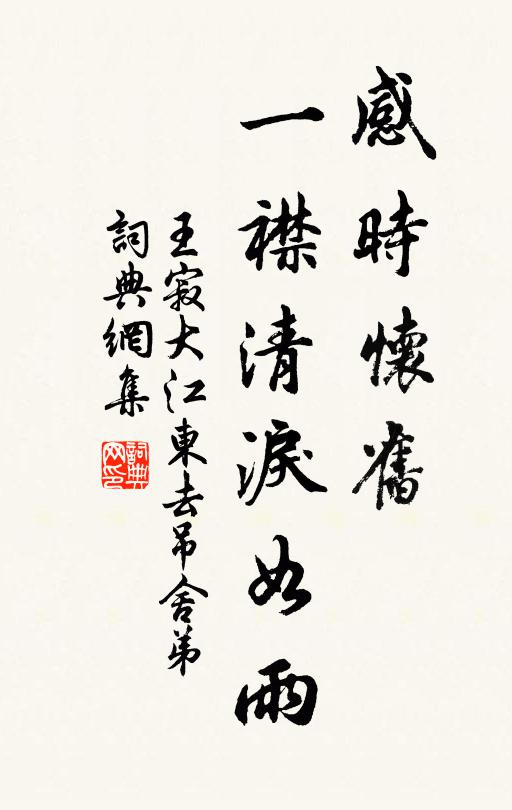 感時懷舊
一襟清淚如雨
王寂大江東去吊舍弟
詞典網集
詞典网印